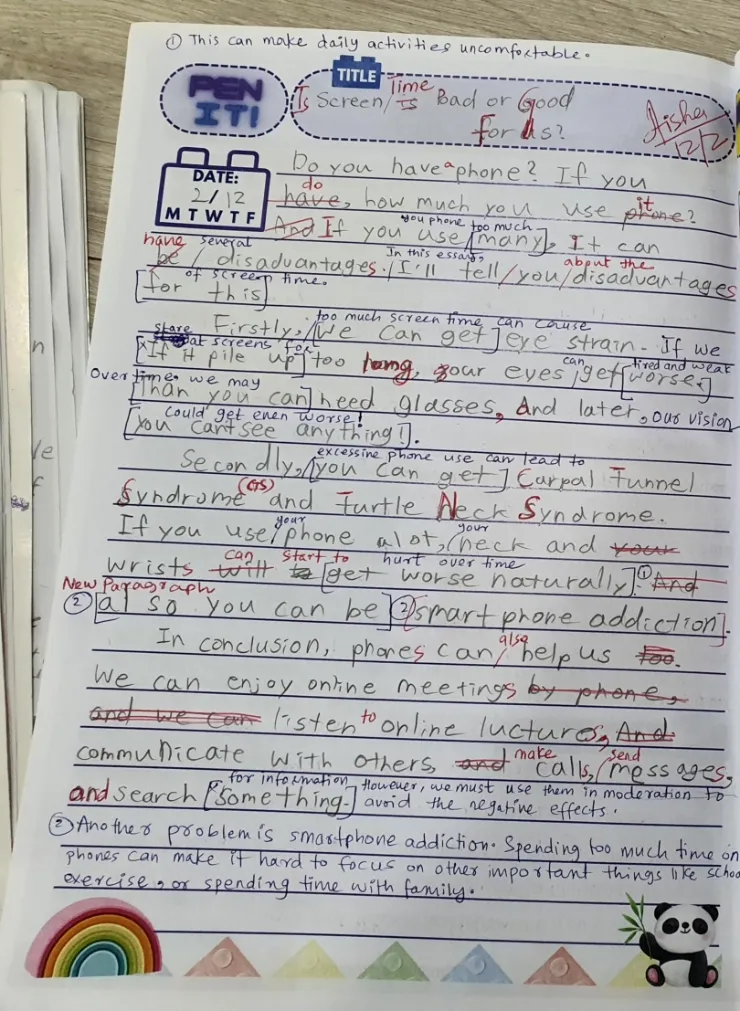 ① This can make daily activities uncomfortable.
PEN IT!
TITLE
Is Screen/Time Is Bad or Good
for Us?
Aisha
12/2
DATE:
2/12
M T W T F
Do you have a phone? If you
do
have, how much you use phone? it
you phone too much
And If you use [many], It can
have several In this essay, about the
be/disadvantages. / I'll tell/you/disadvantages
of screen time.
[for this]
too much screen time can cause
Firstly, /[we can get] eye strain. If we
stare at screens for can tired and weak
[If it pile up] too long, your eyes get [worse.]
Over time, we may
[Than you can] need glasses, And later, our vision
could get even worse!
[you can't see anything!].
excessine phone use can lead to
Secondly, /[you can get] Carpal Tunnel
(CTS)
Syndrome and Turtle Neck Syndrome.
your your
If you use/phone alot, /neck and your
can start to hurt over time
wrists will to [get worse naturally]. ① And
New Paragraph
② [also you can be] ② [smartphone addiction].
also
In conclusion, phones can/help us too.
We can enjoy online meetings by phone,
and we can listen to online luctures, And
make send
communicate with others, and calls, /messages,
for information However, we must use them in moderation to
and search [something.] avoid the negative effects.
② Another problem is smartphone addiction. Spending too much time on
phones can make it hard to focus on other important things like schoo
exercise, or spending time with family.